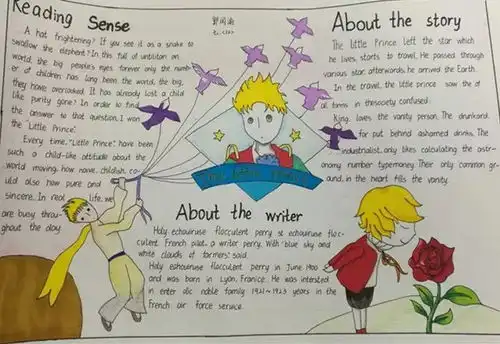 Reading Sense
A hat frightening? If you see it as a snake to
swallow the elephant? In this full of utilition an
world, the big people's eyes forever only the numb
er of children has long been the world, the big,
they have overlooked. It has already lost a child
like purity gone? In order to find
the answer to that question, I won
the "Little Prince".
Every time, "Little Prince" have been
such a child-like attitude about the
world moving, how naive, childish, co-
uld also how pure and
sincere. In real life, we
are busy throu-
ghout the day.
The little Prince
About the story
The Little Prince left the star which
he lives, starts to travel. He passed through
various star, afterwards, he arrived the Earth.
In the travel, the little prince saw the d
al terms in thesociety confused.
King, loves the vanity person, The drunkard.
for put behind ashamed drinks, The
industrialist, only likes calculating the astr-
onomy number typemoney. Their only common gr-
ound, in the heart fills the vanity.
About the writer
Holy echouiruse flocculent perry st echouiruse floc-
culent French pilot, a writer perry. With "blue sky and
white clouds of farmers" said.
Holy echouiruse flocculent perry in June 1900
and was born in Lyon, France. He was interested
in enter alic noble family 1921~1923 years in the
French air force service.